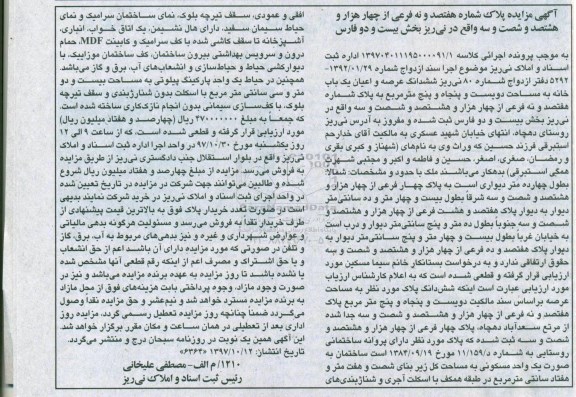 آگهی مزایده پلاک شماره هفتصد و نه فرعی از چهار هزار و
هشتصد و شصت و سه واقع در نی‌ریز بخش بیست و دو فارس
به موجب پرونده اجرائی کلاسه ۱۳۹۷۰۳۰۱۱۱۹۵۰۰۰۰۹/۱ اداره ثبت
اسناد و املاک نی‌ریز موضوع اجرا سند ازدواج شماره ۱۳۹۲/۰۱/۲۹-
۵۲۹۲ دفتر ازدواج شماره ۸۰ نی‌ریز ششدانگ عرصه و اعیان یک باب
خانه به مساحت دویست و پنجاه و پنج مترمربع به پلاک شماره
هفتصد و نه فرعی از چهار هزار و هشتصد و شصت و سه واقع در
نی‌ریز بخش بیست و دو فارس ثبت شده و مفروز به آدرس نی‌ریز
روستای دهچاه، انتهای خیابان شهید عسکری به مالکیت آقای خدارحم
استبرقی فرزند حسین که وراث وی به نام‌های (شهناز و کبری بقری
و رمضان، صفری، اصغر، حسین و فاطمه و اکبر و مجتبی شهرت
همگی استبرقی) بدهکار می‌باشند ملک با حدود و مشخصات: شمالا
بطول چهارده متر دیواری است به پلاک چهار فرعی از چهار هزار و
هشتصد و شصت و سه شرقا بطول بیست و چهار متر و ده سانتی‌متر
دیوار به دیوار پلاک هفتصد و هشت فرعی از چهار هزار و هشتصد و
شصت و سه جنوبا بطول ده متر و پنج سانتی‌متر دیوار و درب است
به خیابان غربا بطول بیست و چهار متر و پنج سانتی‌متر دیوار به
دیوار پلاک هفتصد و ده فرعی از چهار هزار و هشتصد و شصت و سه
حقوق ارتفاقی ندارد و به درخواست بستانکار خانم سیما مسکین مورد
ارزیابی قرار گرفته و قطعی شده است که به اعلام کارشناس ارزیاب
مورد ارزیابی عبارت است اینکه شش‌دانگ پلاک مورد نظر به مساحت
عرصه براساس سند مالکیت دویست و پنجاه و پنج متر مربع پلاک
هفتصد و نه فرعی از چهار هزار و هشتصد و شصت و سه جدا شده
از مرتع سعدآباد دهچاه، پلاک چهار فرعی از چهار هزار و هشتصد و
شصت و سه ثبت شده که پلاک مورد نظر دارای پروانه ساختمانی
روستایی به شماره د/۱۱/۱۵۹ مورخ ۱۳۸۴/۰۹/۱۹ است ساختمان به
صورت یک واحد مسکونی به مساحت کل زیر بنای شصت و هفت متر و
هفتاد سانتی مترمربع در طبقه همکف با اسکلت آجری و شناژبندی‌های
افقی و عمودی، سقف تیرچه بلوک، نمای ساختمان سرامیک و نمای
حیاط سیمان سفید، دارای هال نشیمن، یک اتاق خواب، انباری،
آشپزخانه تا سقف کاشی شده با کف سرامیک و کابینت MDF، حمام
درون و سرویس بهداشتی بیرون ساختمان، کف ساختمان موزاییک، با
دیوارکشی حیاط و حیاط‌سازی و انشعاب‌های آب، برق و گاز می‌باشد.
همچنین در حیاط یک واحد پارکینگ پیلوتی به مساحت بیست و دو
متر و سی سانتی متر مربع با اسکلت بدون شناژبندی و سقف تیرچه
بلوک، با کف‌سازی سیمانی بدون انجام نازک‌کاری ساخته شده است.
که جمعـاً به مبلغ ۴۷۰۰۰۰۰۰۰ ریال (چهارصد و هفتاد میلیون ریال)
مورد ارزیابی قرار گرفته و قطعی شده است، که از ساعت ۹ الی ۱۲
روز یکشنبه مورخ ۹۷/۱۰/۳۰ در واحد اجرا اداره ثبت اسناد و املاک
نی‌ریز واقع در بلوار استقلال جنب دادگستری نی‌ریز از طریق مزایده
به فروش می‌رسد. مزایده از مبلغ چهارصد و هفتاد میلیون ریال شروع
شده و طالبین می‌توانند جهت شرکت در مزایده در تاریخ تعیین شده
در واحد اجرای ثبت اسناد و املاک نی‌ریز در خرید شرکت نمایند بدیهی
است در صورت تعدد خریدار پلاک فوق به بالاترین قیمت پیشنهادی از
طرف خریدار نقداً به فروش می‌رسد و مسئولیت هرگونه بدهی مالیاتی
و عوارض شهرداری و غیره و نیز بدهی‌های مربوط به آب، برق، گاز
و تلفن در صورتی که مورد مزایده دارای آن باشند اعم از حق انشعاب
و یا حق اشتراک و مصرف اعم از اینکه رقم قطعی آنها مشخص شده
یا نشده باشد تا روز مزایده به عهده برنده مزایده می‌باشد و نیز در
صورت وجود مازاد، وجوه پرداختی بابت هزینه‌های فوق از محل مازاد
به برنده مزایده مسترد خواهد شد و نیم‌عشر و حق مزایده نقداً وصول
می‌گردد ضمناً چنانچه روز مزایده تعطیل رسمی گردد، مزایده روز
اداری بعد از تعطیلی در همان ساعت و مکان مقرر برگزار خواهد شد.
این آگهی همین یک نوبت در روزنامه سبحان درج و منتشر می‌گردد.
تاریخ انتشار: ۱۳۹۷/۱۰/۱۲ «۳۶۳۳»
۱۲۱۰/ م الف- مصطفی علیخانی
رئیس ثبت اسناد و املاک نی‌ریز